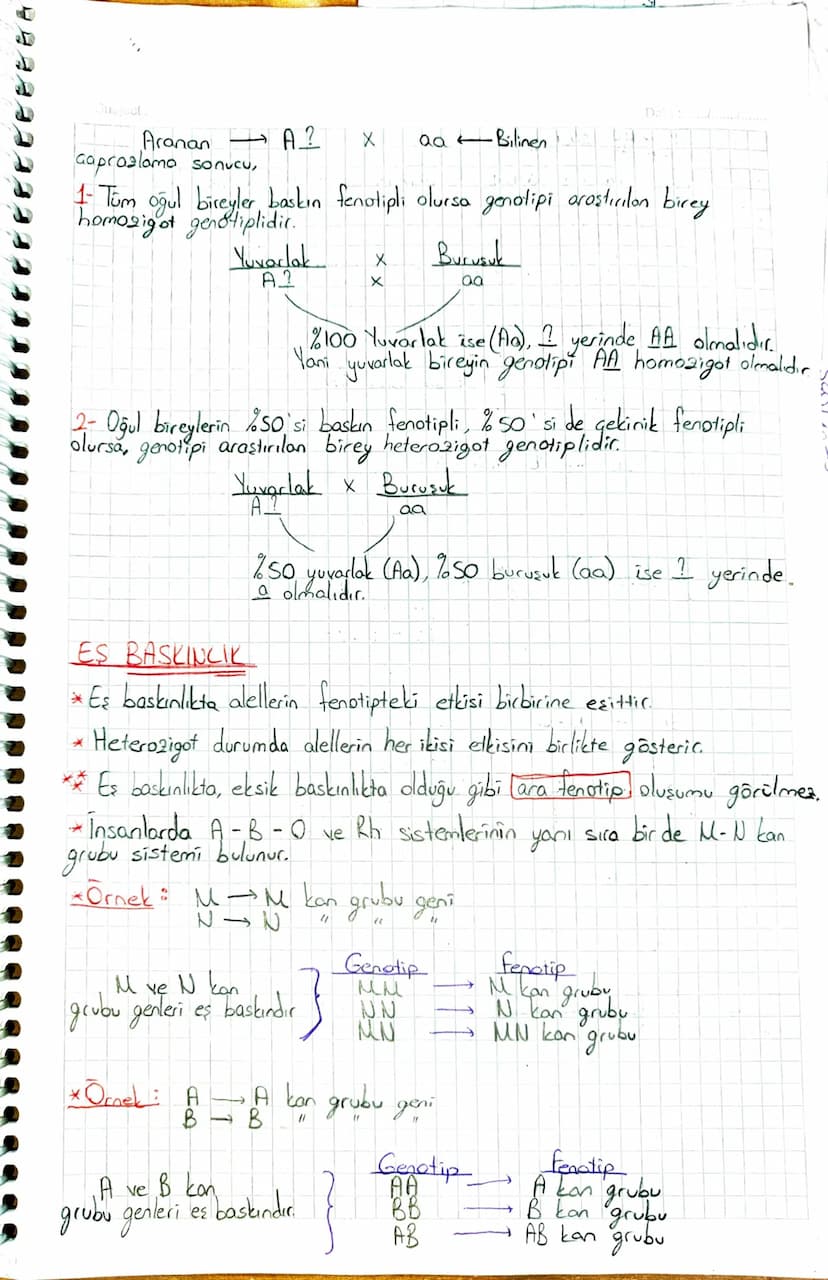 Aranan → A ? x aa ← Bilinen
Çaprazlama sonucu,
1- Tüm oğul bireyler baskın fenotipli olursa genotipi araştırılan birey
homozigot genotiplidir.
Yuvarlak x Buruşuk
A ? x aa
%100 Yuvarlak ise (Aa), ? yerinde AA olmalıdır.
Yani yuvarlak bireyin genotipi AA homozigot olmalıdır
2- Oğul bireylerin %50'si baskın fenotipli, %50'si de çekinik fenotipli
olursa, genotipi araştırılan birey heterozigot genotiplidir.
Yuvarlak x Buruşuk
A ? aa
%50 yuvarlak (Aa), %50 buruşuk (aa) ise ? yerinde
a olmalıdır.
EŞ BASKINLIK
* Eş baskınlıkta alellerin fenotipteki etkisi birbirine eşittir.
* Heterozigot durumda alellerin her ikisi etkisini birlikte gösterir.
** Eş baskınlıkta, eksik baskınlıkta olduğu gibi ara fenotip oluşumu görülmez.
* İnsanlarda A-B-O ve Rh sistemlerinin yanı sıra bir de M-N kan
grubu sistemi bulunur.
* Örnek: M → M kan grubu geni
N → N " " "
Genotip Fenotip
M ve N kan MM → M kan grubu
grubu genleri eş baskındır NN → N kan grubu
MN → MN kan grubu
* Örnek: A → A kan grubu geni
B → B " " "
Genotip Fenotip
A ve B kan AA → A kan grubu
grubu genleri eş baskındır. BB → B kan grubu
AB → AB kan grubu